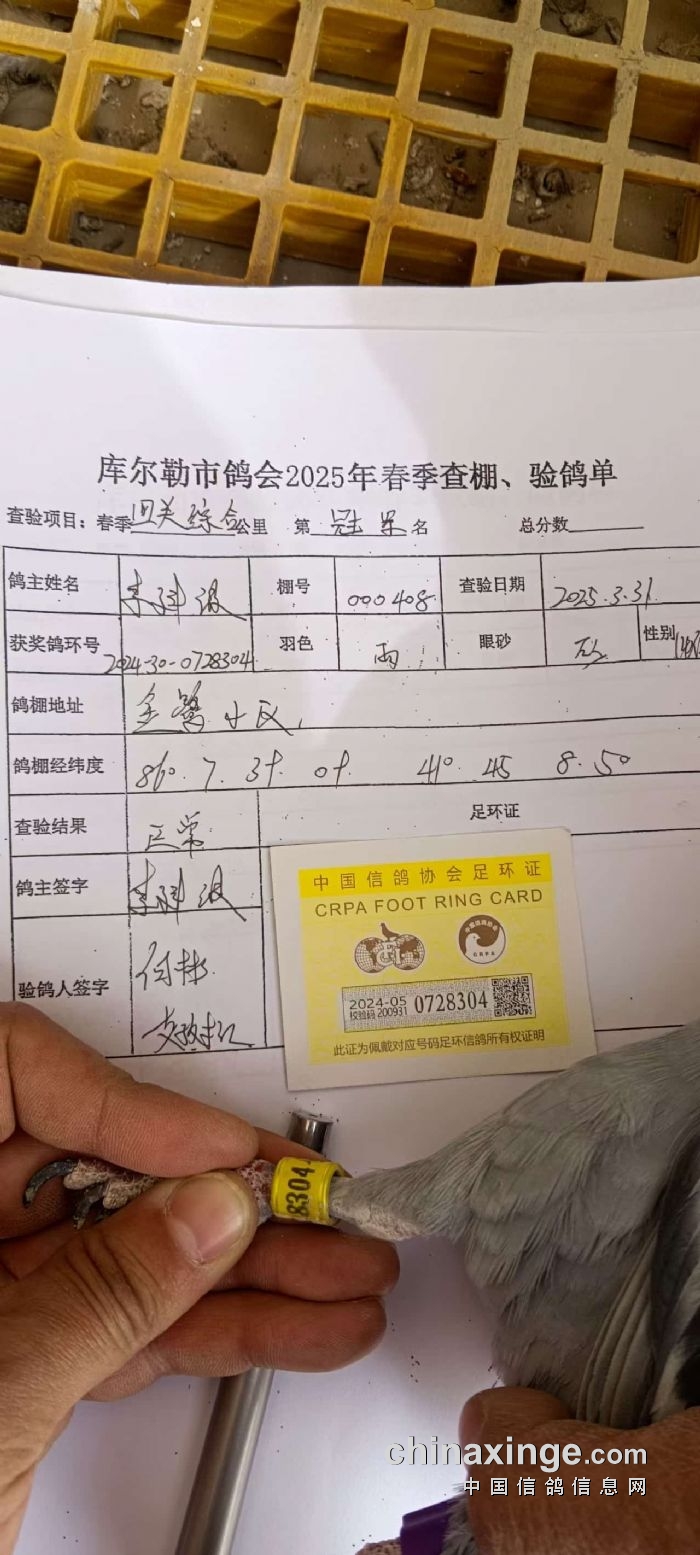 库尔勒市鸽会2025年春季查棚、验鸽单
查验项目：春季四关综合公里 第冠军名 总分数
鸽主姓名 棚号 000408 查验日期 2025.3.31
获奖鸽环号 2024-30-0728304 羽色 雨 眼砂 砂 性别
鸽棚地址 小区
鸽棚经纬度
查验结果 正常 足环证
鸽主签字
验鸽人签字
中国信鸽协会足环证
CRPA FOOT RING CARD
2024-05 0728304
校验码 200931
此证为佩戴对应号码足环信鸽所有权证明
8304
chinaxinge.com
中国信鸽信息网